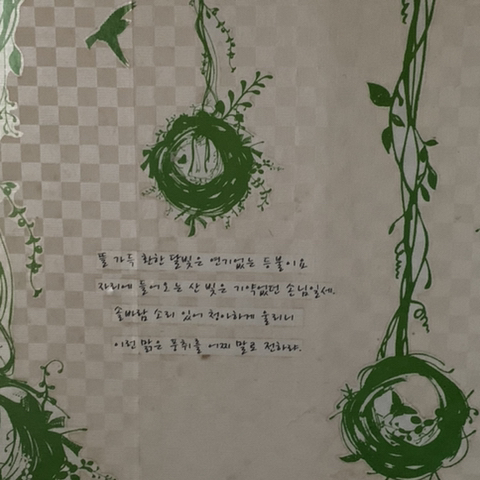 뜰 가득 환한 달빛은 연기없는 등불이요
자리에 들어오는 산 빛은 기약없던 손님일세.
솔바람 소리 있어 청아하게 울리니
이런 맑은 풍취를 어찌 말로 전하랴.